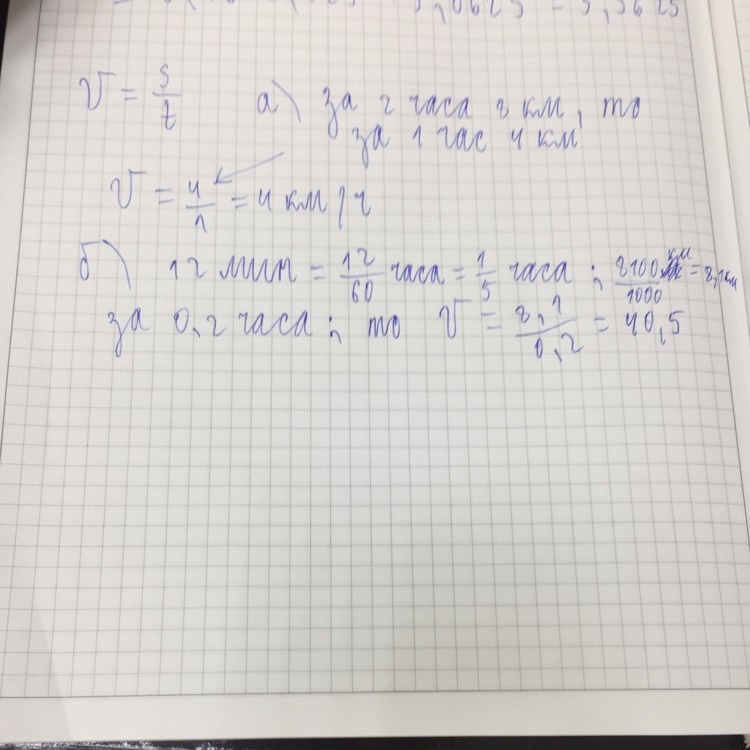 V = s/t а) за 2 часа 8 км, то
за 1 час 4 км
V = 4/1 = 4 км/ч
б) 12 мин = 12/60 часа = 1/5 часа ; 8100/1000 км = 8,1 км
за 0,2 часа ; то V = 8,1/0,2 = 40,5